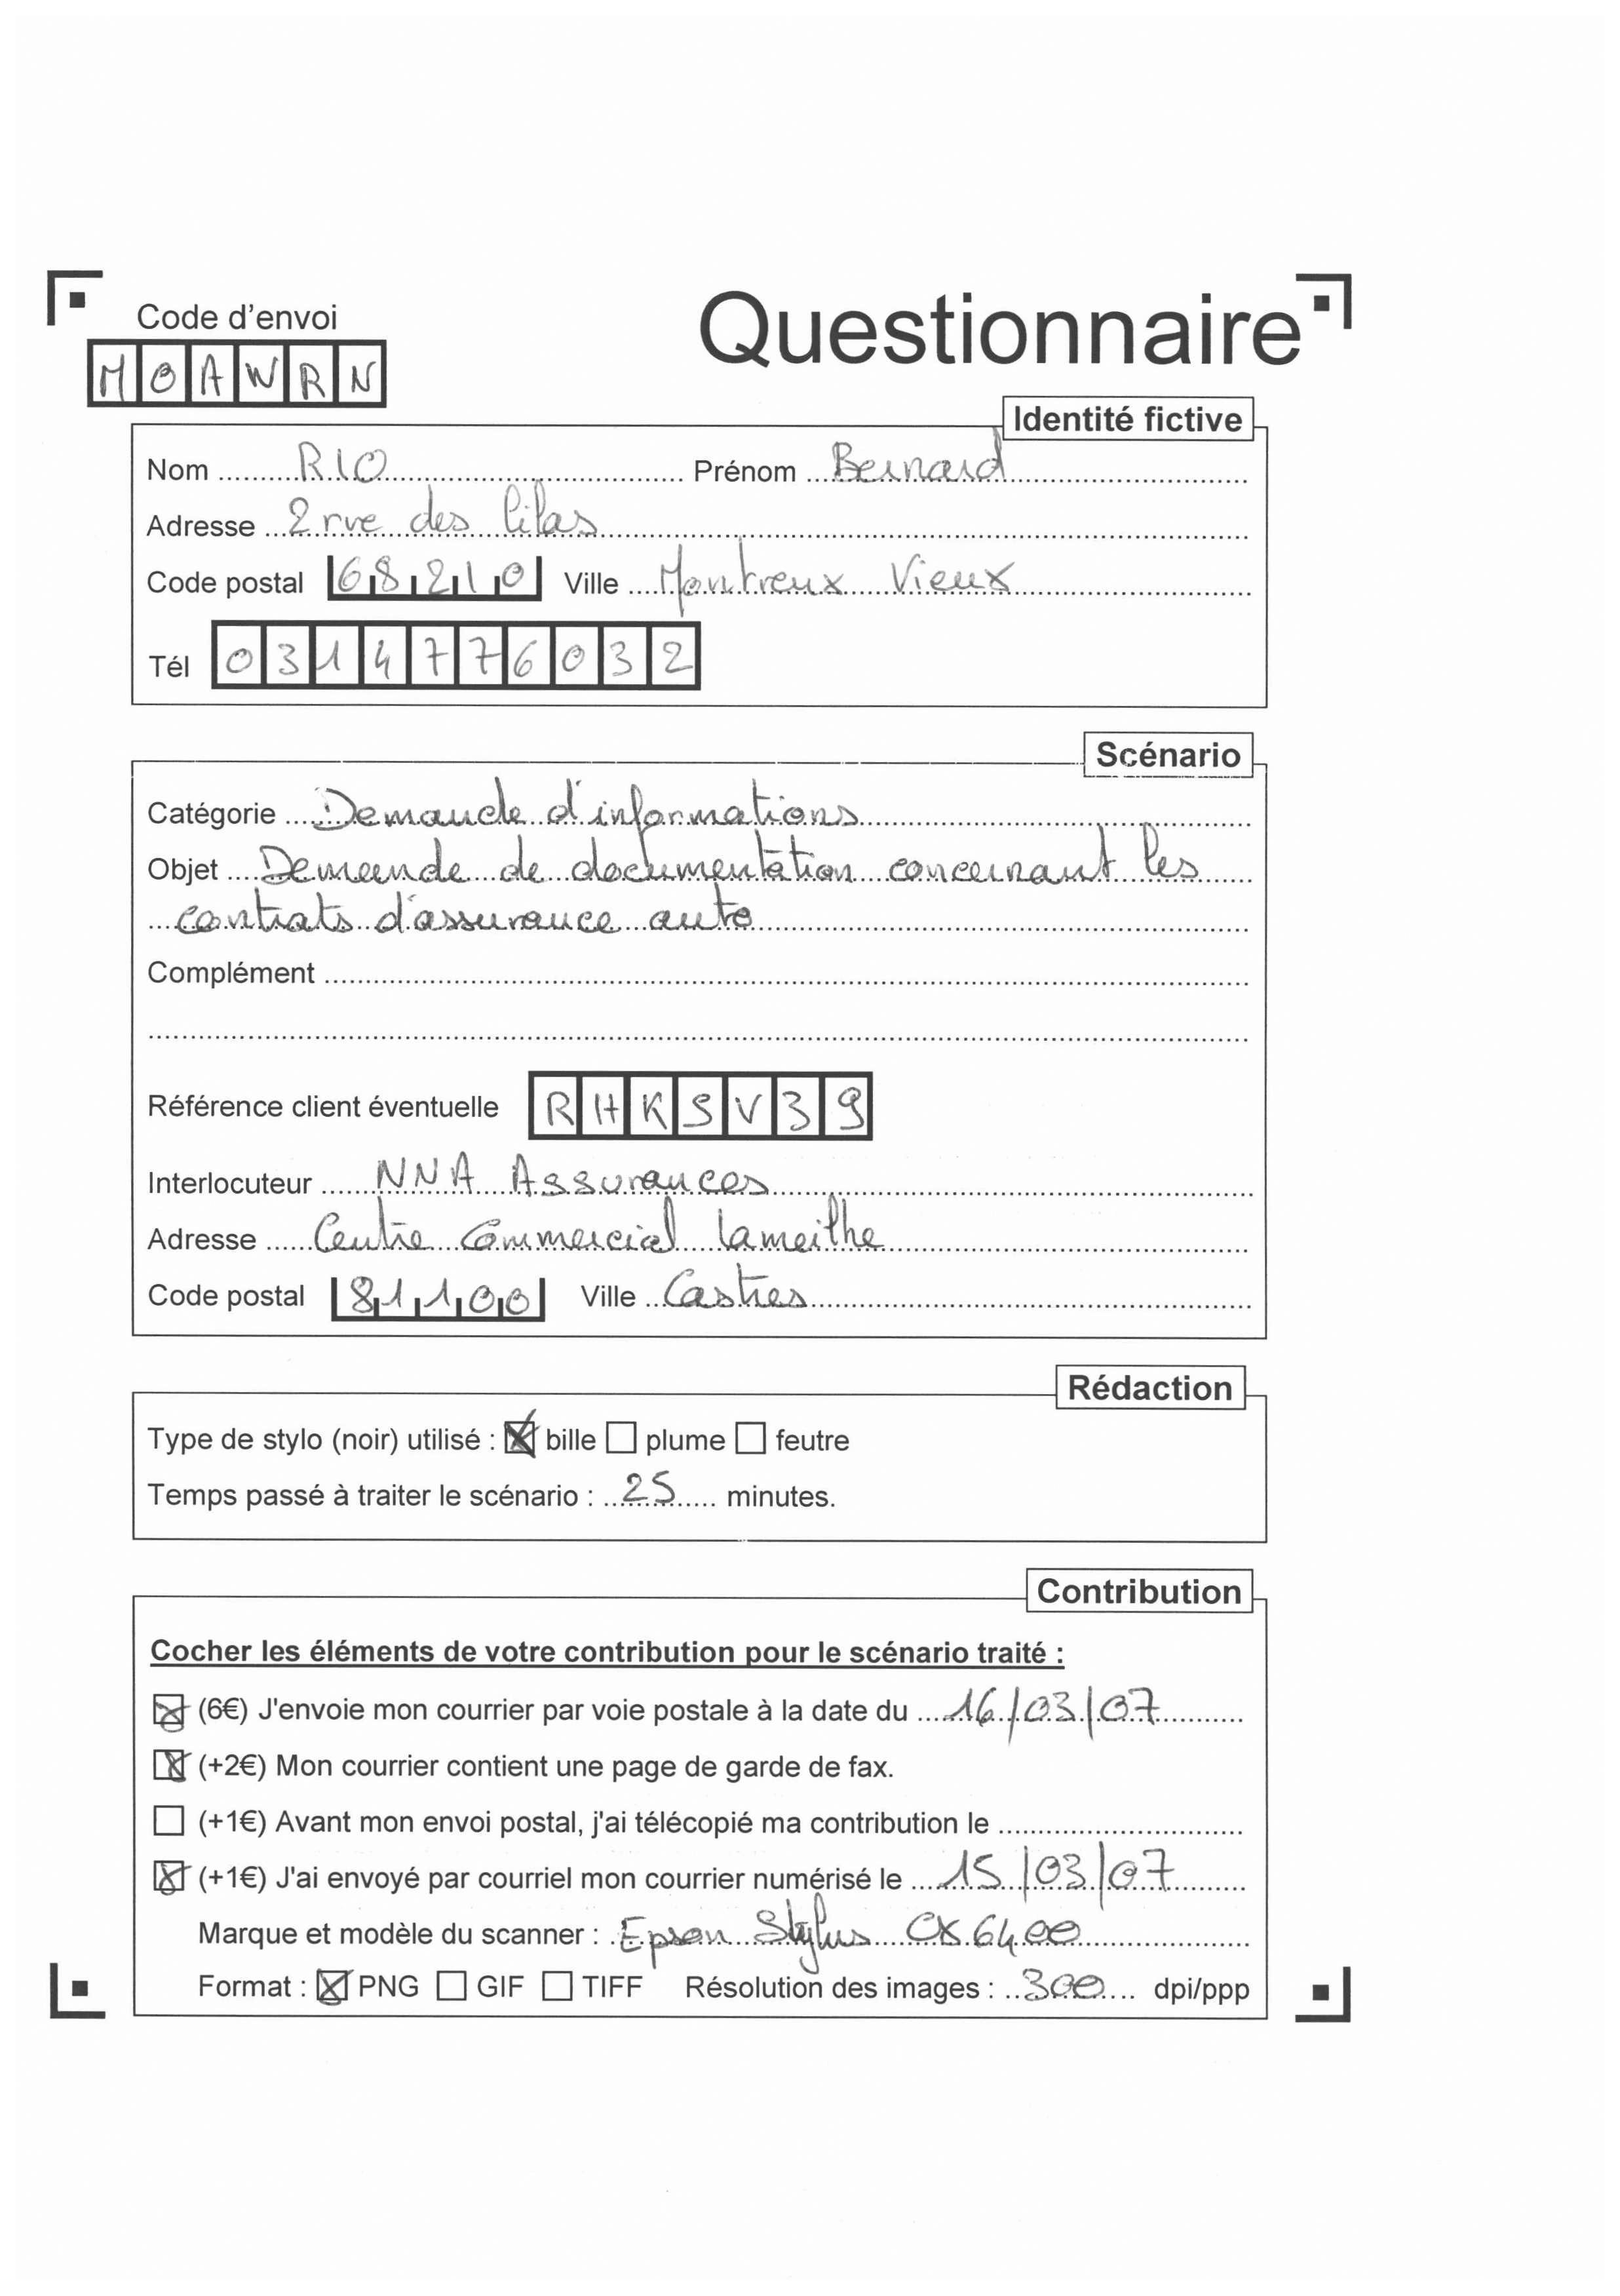 Code d'envoi
Questionnaire
MOAWRN
Identité fictive
Nom RIO Prénom Bernard
Adresse 2 rue des lilas
Code postal 68210 Ville Montreux Vieux
Tél 0314776032
Scénario
Catégorie Demande d'informations
Objet Demande de documentation concernant les
contrats d'assurance auto
Complément
Référence client éventuelle RHKSV39
Interlocuteur NNA Assurances
Adresse Centre Commercial Lameilhe
Code postal 81100 Ville Castres
Rédaction
Type de stylo (noir) utilisé : bille plume feutre
Temps passé à traiter le scénario : 25 minutes.
Contribution
Cocher les éléments de votre contribution pour le scénario traité :
(6€) J'envoie mon courrier par voie postale à la date du 16/03/07
(+2€) Mon courrier contient une page de garde de fax.
(+1€) Avant mon envoi postal, j'ai télécopié ma contribution le
(+1€) J'ai envoyé par courriel mon courrier numérisé le 15/03/07
Marque et modèle du scanner : Epson Stylus CX6400
Format : PNG GIF TIFF Résolution des images : 300 dpi/ppp